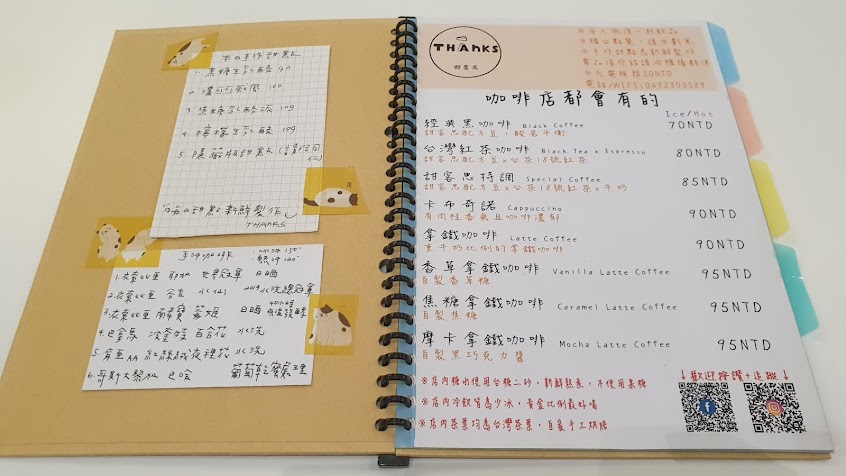 本日手作甜點
1. 黑糖生乳酪 90
2. 濃可可 100
3. 焦糖乳酪派 109
4. 檸檬生乳酪 109
5. 隱藏版甜點
每日甜點新鮮製作
THANKS
手沖咖啡
1. 衣索比亞 耶加 世界冠軍 日曬
2. 衣索比亞 水洗線冠軍
3. 衣索比亞 日曬
4. 巴拿馬 波奎特 百合花 水洗
5. 肯亞AA 水洗
6. 哥斯大黎加 巴哈 葡萄乾蜜處理
THANKS
甜客思
電話/WIFI:0492303589
咖啡店都會有的
Ice/Hot
經典黑咖啡 Black Coffee 70NTD
甜客思配方豆，酸苦平衡
台灣紅茶咖啡 Black Tea x Espresso 80NTD
甜客思配方豆x台茶18號紅茶
甜客思特調 Special Coffee 85NTD
甜客思配方豆x台茶18號紅茶x牛奶
卡布奇諾 Cappuccino 90NTD
有肉桂香氣且咖啡濃郁
拿鐵咖啡 Latte Coffee 90NTD
重牛奶比例的拿鐵咖啡
香草拿鐵咖啡 Vanilla Latte Coffee 95NTD
自製香草糖
焦糖拿鐵咖啡 Caramel Latte Coffee 95NTD
自製焦糖
摩卡拿鐵咖啡 Mocha Latte Coffee 95NTD
自製黑巧克力醬
↓歡迎按讚+追蹤↓
※店內糖水使用台糖二砂，新鮮熬煮，不使用果糖
※店內冷飲皆為少冰，黃金比例最好喝
※店內茶葉均為台灣茶葉，自家手工烘焙